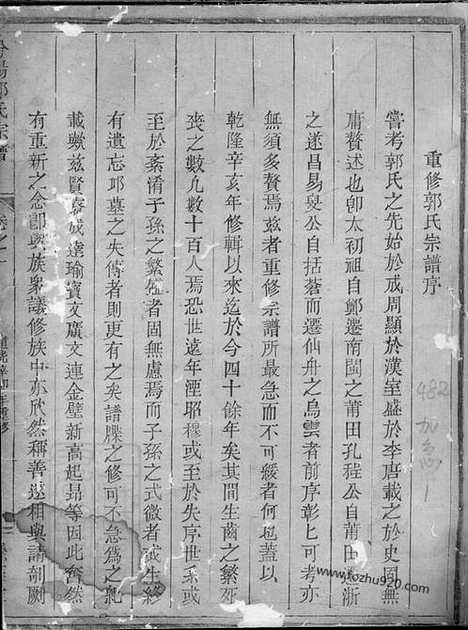 重修郭氏宗譜序
嘗考郭氏之先始於成周顯於漢室盛於李唐載之於史固無
庸贅述也卽太初祖自鄭遷南閩之莆田孔程公自莆田遷浙
之遂昌易叟公自括蒼而遷仙舟之烏雲者前序彰匕可考亦
無須多贅焉兹者重修宗譜所最急而不可緩者何也蓋以
乾隆辛亥年修輯以來迄於今四十餘年矣其間生齒之繁死
喪之數九數十百人焉恐世遠年湮昭穆或至於失序世系或
至於紊淆子孫之繁盛者固無慮焉而子孫之式微者或生終
有遺忘邱墓之失傳者則更有之矣諸牒之修可不急爲之
載歟兹賢裔成達瑜寶文廣文連金壁新高起昂等因此奮然
有重新之念卽與族衆議修族中亦欣然稱善遂相與請剞劂
郭氏宗譜
482
www.fozhu920.com